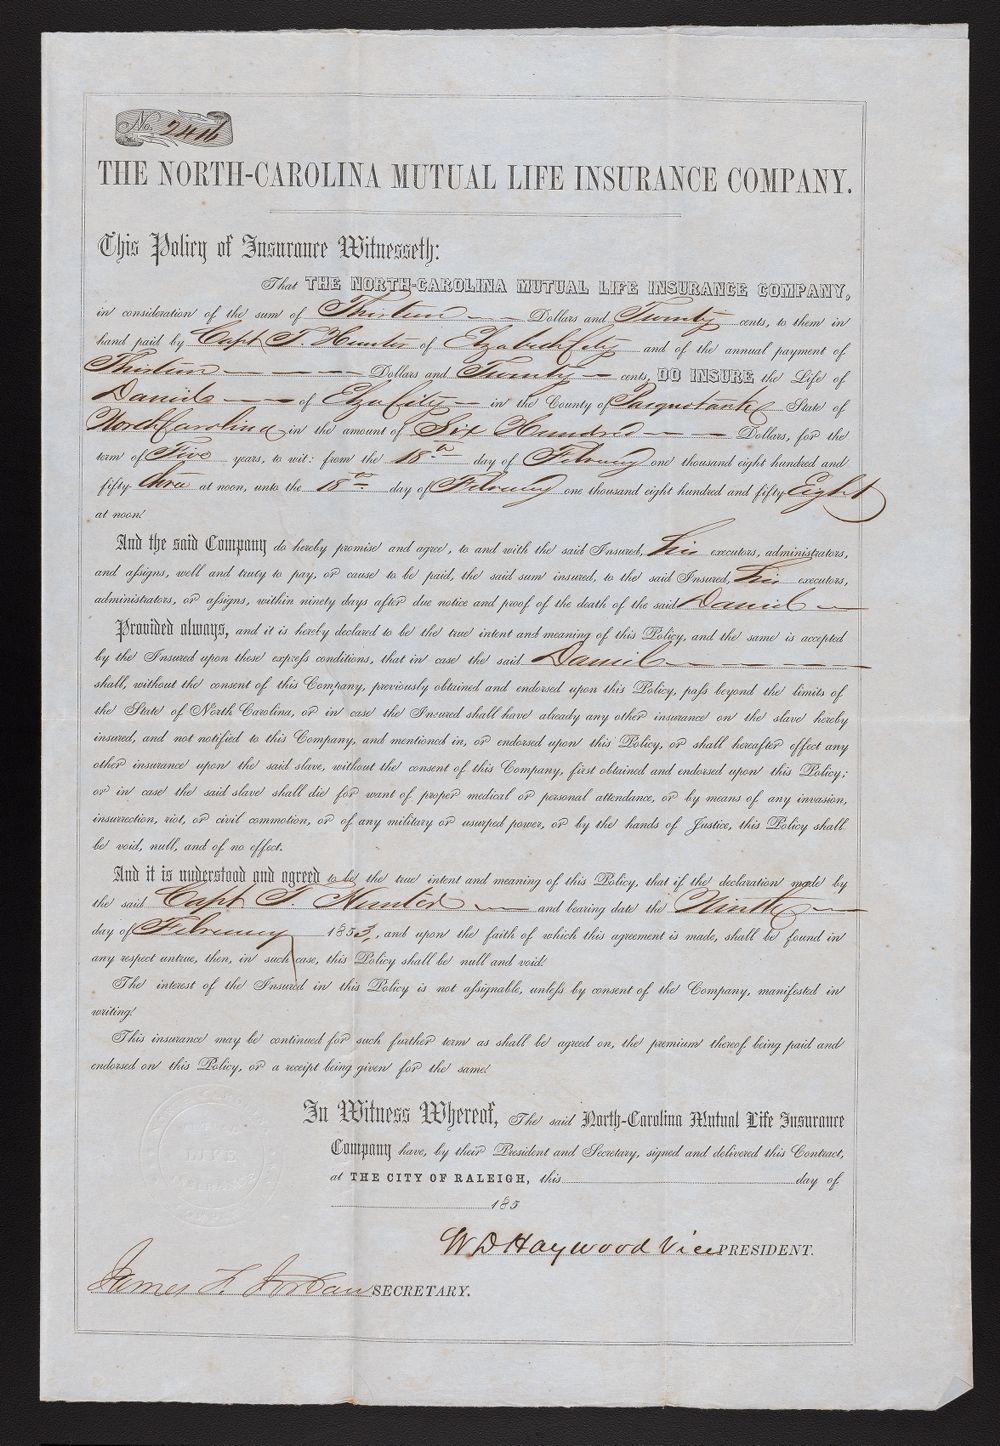 No. 2416
THE NORTH-CAROLINA MUTUAL LIFE INSURANCE COMPANY.
This Policy of Insurance Witnesseth:
That THE NORTH-CAROLINA MUTUAL LIFE INSURANCE COMPANY,
in consideration of the sum of Thirteen Dollars and Twenty cents, to them in
hand paid by Capt T. Hunter of Elizabeth City and of the annual payment of
Thirteen Dollars and Twenty cents, DO INSURE the Life of
Daniel of Eliza City in the County of Pasquotank State of
North Carolina in the amount of Six Hundred Dollars, for the
term of Five years, to wit: from the 18th day of February one thousand eight hundred and
fifty three at noon, unto the 18th day of February one thousand eight hundred and fifty Eight
at noon.
And the said Company do hereby promise and agree, to and with the said Insured, his executors, administrators,
and assigns, well and truly to pay, or cause to be paid, the said sum insured, to the said Insured, his executors,
administrators, or assigns, within ninety days after due notice and proof of the death of the said Daniel
Provided always, and it is hereby declared to be the true intent and meaning of this Policy, and the same is accepted
by the Insured upon these express conditions, that in case the said Daniel
shall, without the consent of this Company, previously obtained and endorsed upon this Policy, pass beyond the limits of
the State of North Carolina, or in case the Insured shall have already any other insurance on the slave hereby
insured, and not notified to this Company, and mentioned in, or endorsed upon this Policy, or shall hereafter effect any
other insurance upon the said slave, without the consent of this Company, first obtained and endorsed upon this Policy;
or in case the said slave shall die for want of proper medical or personal attendance, or by means of any invasion,
insurrection, riot, or civil commotion, or of any military or usurped power, or by the hands of Justice, this Policy shall
be void, null, and of no effect.
And it is understood and agreed to be the true intent and meaning of this Policy, that if the declaration made by
the said Capt T. Hunter and bearing date the Ninth
day of February 1853, and upon the faith of which this agreement is made, shall be found in
any respect untrue, then, in such case, this Policy shall be null and void.
The interest of the Insured in this Policy is not assignable, unless by consent of the Company, manifested in
writing.
This insurance may be continued for such further term as shall be agreed on, the premium thereof being paid and
endorsed on this Policy, or a receipt being given for the same.
In Witness Whereof, The said North-Carolina Mutual Life Insurance
Company have, by their President and Secretary, signed and delivered this Contract,
at THE CITY OF RALEIGH, this day of
185
LIFE
W D Haywood Vice PRESIDENT.
James F. Jordan SECRETARY.